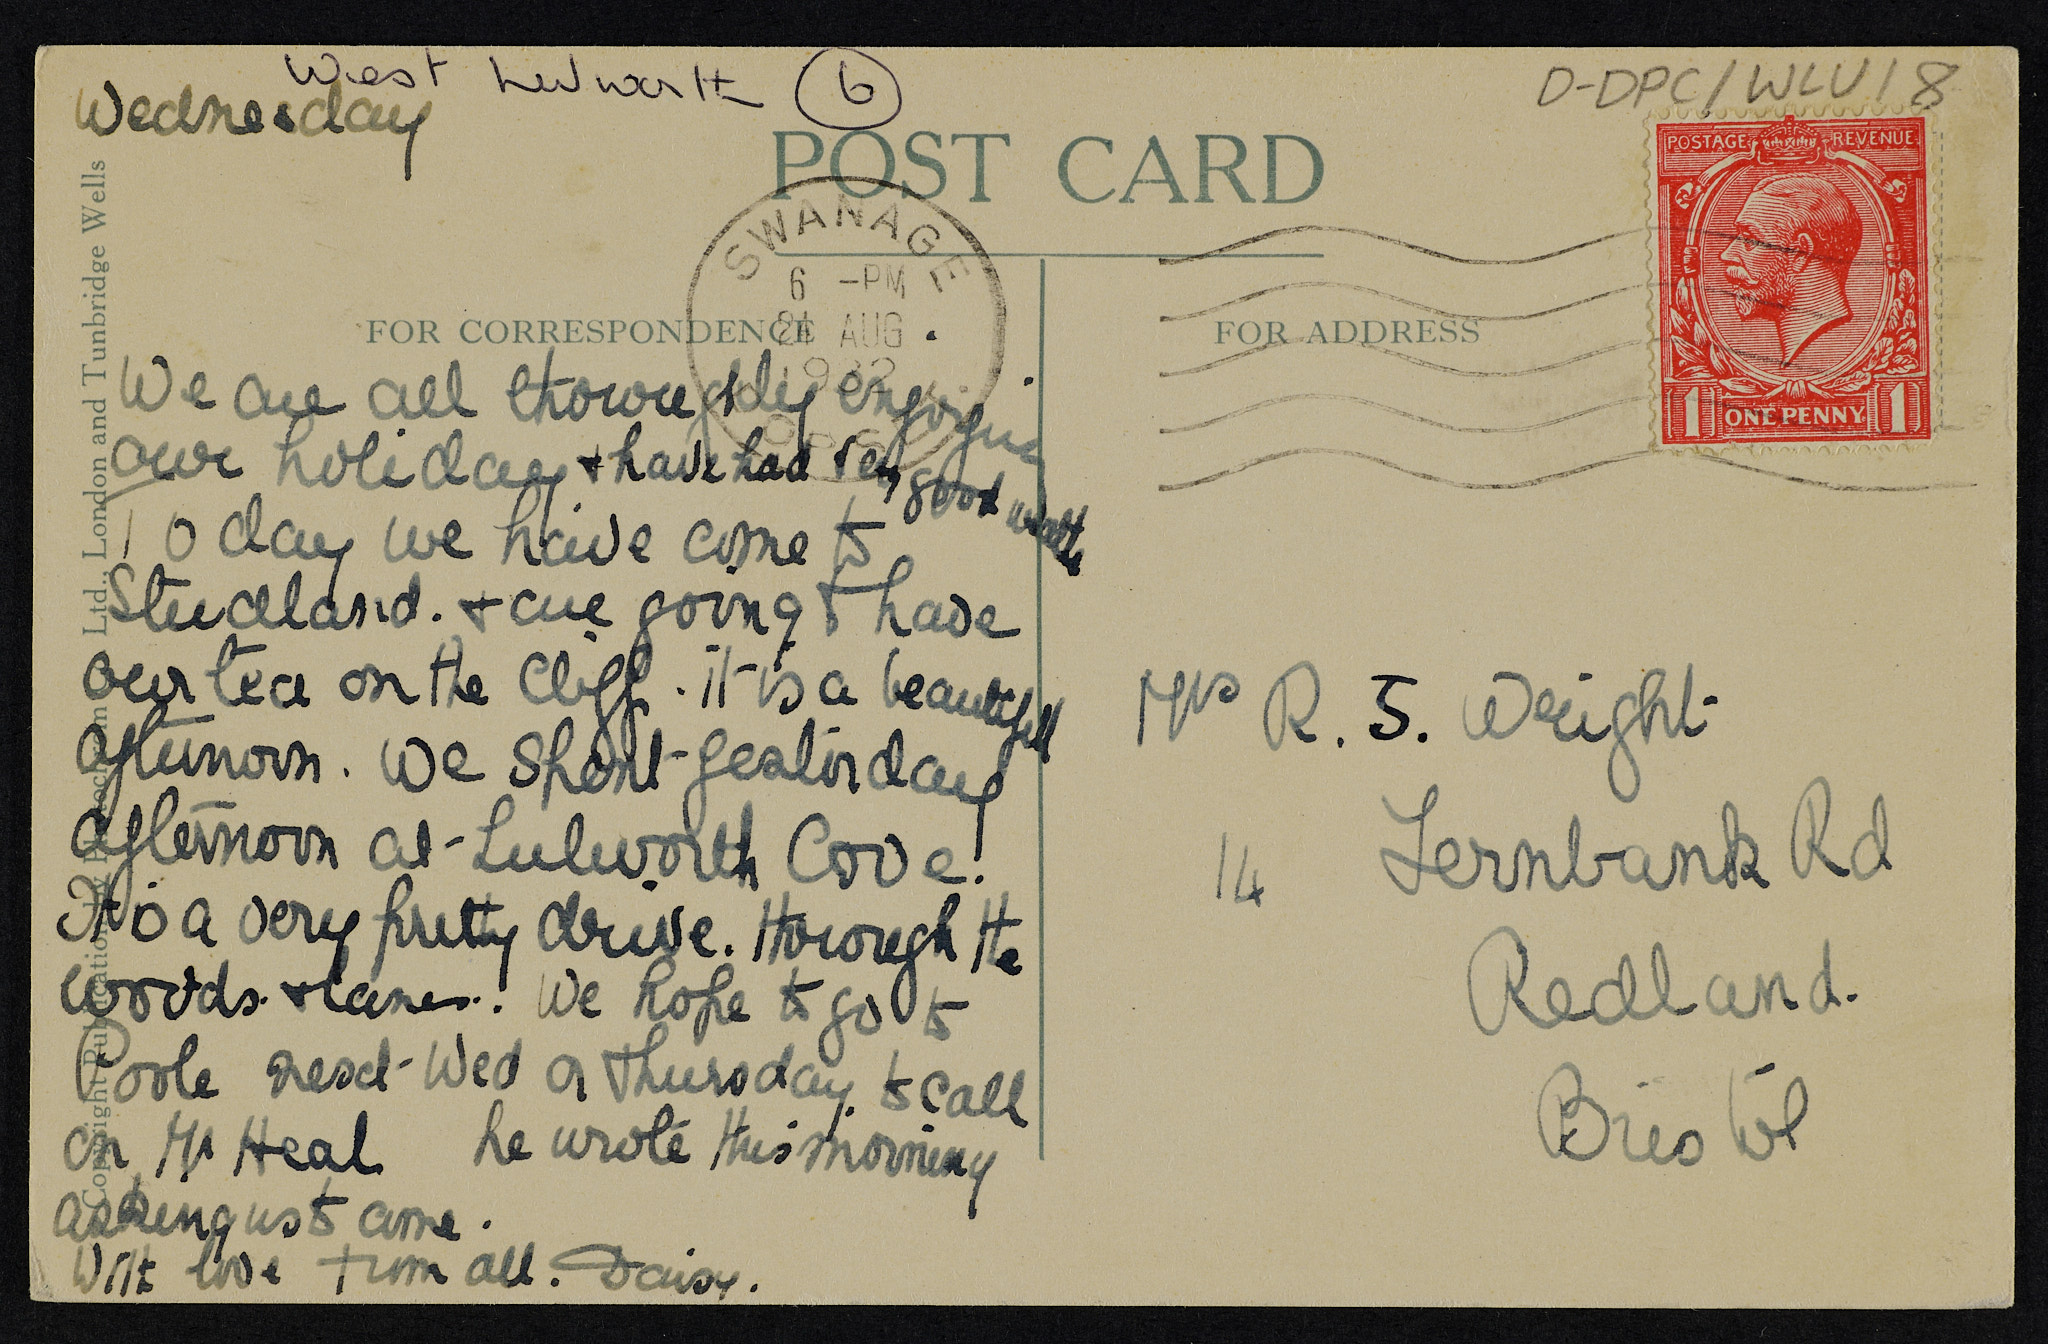 West Lulworth 6
D-DPC/WLU18
Wednesday
POST CARD
POSTAGE REVENUE
1 ONE PENNY 1
SWANAGE
6 -PM
24 AUG
1932
FOR CORRESPONDENCE
FOR ADDRESS
We are all thoroughly enjoying
our holiday + have had very good weather
Today we have come to
Studland. + are going to have
our tea on the Cliff. it is a beautifull
afternoon. We spent yesterday
afternoon at Lulworth Cove!
It is a very pretty drive. through the
woods + lanes. We hope to go to
Poole next Wed or Thursday to call
on Mr Heal he wrote this morning
asking us to come.
With love from all. Daisy.
Mrs R. J. Wright
14 Fernbank Rd
Redland.
Bristol
Ltd., London and Tunbridge Wells